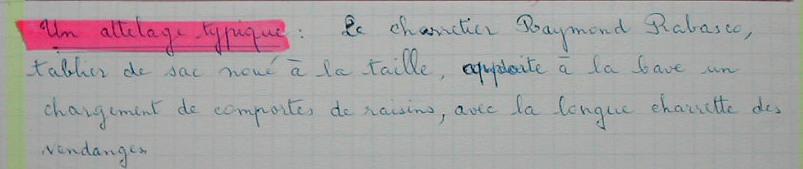 Un attelage typique : Le charretier Raymond Rabasco,
tablier de sac noué à la taille, apporte à la cave un
chargement de comportes de raisins, avec la longue charrette des
vendanges